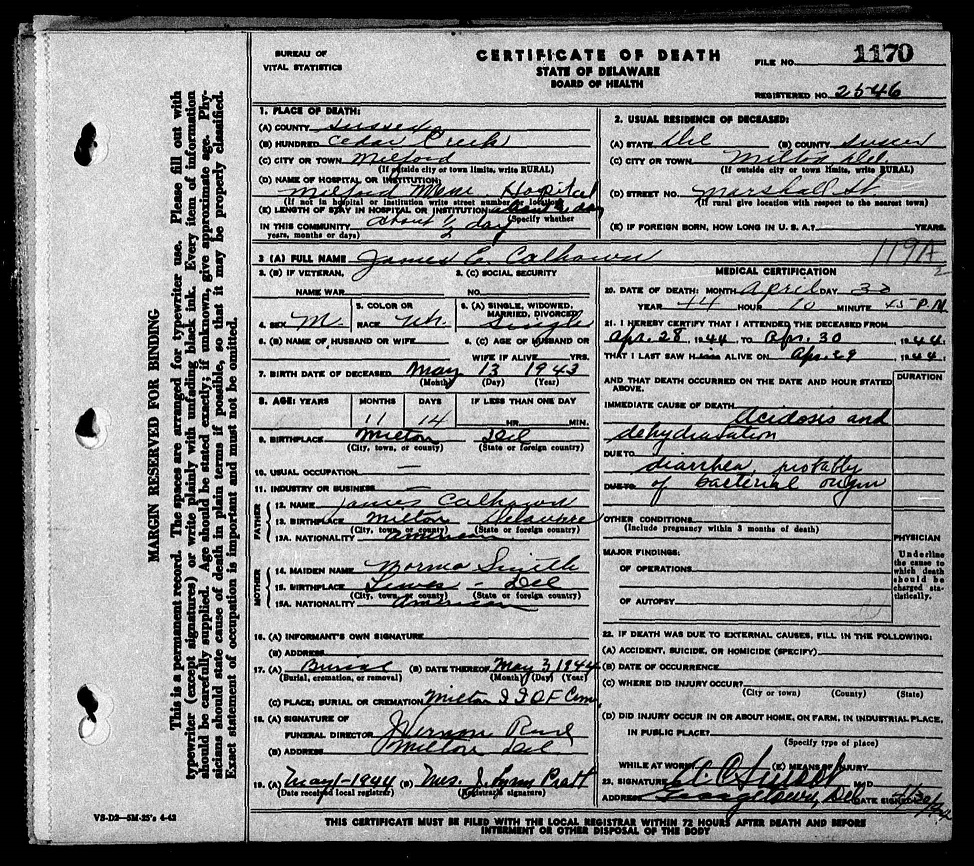 BUREAU OF
VITAL STATISTICS
CERTIFICATE OF DEATH
STATE OF DELAWARE
BOARD OF HEALTH
FILE NO. 1170
REGISTERED NO. 2546
MARGIN RESERVED FOR BINDING
This is a permanent record. The spaces are arranged for typewriter use. Please fill out with
typewriter (except signatures) or write plainly with unfading black ink. Every item of information
should be carefully supplied. Age should be stated exactly; if unknown, give approximate age. Phy-
sicians should state cause of death in plain terms if possible, so that it may be properly classified.
Exact statement of occupation is important and must not be omitted.
VS-D2—5M-25's 4-42
1. PLACE OF DEATH:
(A) COUNTY Sussex
(B) HUNDRED Cedar Creek
(C) CITY OR TOWN Milford
(If outside city or town limits, write RURAL)
(D) NAME OF HOSPITAL OR INSTITUTION:
Milford Mem. Hospital
(If not in hospital or institution write street number or location)
(E) LENGTH OF STAY IN HOSPITAL OR INSTITUTION about ½ day
(Specify whether
IN THIS COMMUNITY about ½ day
years, months or days)
2. USUAL RESIDENCE OF DECEASED:
(A) STATE Del (B) COUNTY Sussex
(C) CITY OR TOWN Milton Del.
(If outside city or town limits, write RURAL)
(D) STREET NO. Marshall St
(If rural give location with respect to the nearest town)
(E) IF FOREIGN BORN, HOW LONG IN U. S. A.? YEARS.
3 (A) FULL NAME James C. Calhoun
119A
2
3. (B) IF VETERAN, 3. (C) SOCIAL SECURITY
NAME WAR NO.
4. SEX M. 5. COLOR OR RACE Wh. 6. (A) SINGLE, WIDOWED, MARRIED, DIVORCED Single
6. (B) NAME OF HUSBAND OR WIFE 6. (C) AGE OF HUSBAND OR
WIFE IF ALIVE YRS.
7. BIRTH DATE OF DECEASED May 13 1943
(Month) (Day) (Year)
8. AGE: YEARS MONTHS DAYS IF LESS THAN ONE DAY
11 14 HR. MIN.
9. BIRTHPLACE Milton Del
(City, town, or county) (State or foreign country)
10. USUAL OCCUPATION —
11. INDUSTRY OR BUSINESS —
FATHER
12. NAME James Calhoun
13. BIRTHPLACE Milton Delaware
(City, town, or county) (State or foreign country)
13A. NATIONALITY American
MOTHER
14. MAIDEN NAME Norma Smith
15. BIRTHPLACE Lewes - Del
(City, town, or county) (State or foreign country)
15A. NATIONALITY American
16. (A) INFORMANT'S OWN SIGNATURE
(B) ADDRESS
17. (A) Burial (B) DATE THEREOF May 3, 1944
(Burial, cremation, or removal) (Month) (Day) (Year)
(C) PLACE: BURIAL OR CREMATION Milton I O O F Cem.
18. (A) SIGNATURE OF
FUNERAL DIRECTOR J Vernon
(B) ADDRESS Milton Del
19. (A) May 1-1944 (B) Mrs. J. Lynn Pratt
(Date received local registrar) (Registrar's signature)
MEDICAL CERTIFICATION
20. DATE OF DEATH: MONTH April DAY 30
YEAR 44 HOUR 10 MINUTE 45 P.M.
21. I HEREBY CERTIFY THAT I ATTENDED THE DECEASED FROM
Apr. 28, 1944, TO Apr. 30 1944.
THAT I LAST SAW H ALIVE ON Apr. 29 1944.
AND THAT DEATH OCCURRED ON THE DATE AND HOUR STATED
ABOVE.
DURATION
IMMEDIATE CAUSE OF DEATH Acidosis and
dehydration
DUE TO diarrhea, probably
DUE TO of bacterial origin
OTHER CONDITIONS
(Include pregnancy within 3 months of death)
MAJOR FINDINGS:
OF OPERATIONS
OF AUTOPSY
PHYSICIAN
Underline
the cause to
which death
should be
charged sta-
tistically.
22. IF DEATH WAS DUE TO EXTERNAL CAUSES, FILL IN THE FOLLOWING:
(A) ACCIDENT, SUICIDE, OR HOMICIDE (SPECIFY)
(B) DATE OF OCCURRENCE
(C) WHERE DID INJURY OCCUR?
(City or town) (County) (State)
(D) DID INJURY OCCUR IN OR ABOUT HOME, ON FARM, IN INDUSTRIAL PLACE,
IN PUBLIC PLACE?
(Specify type of place)
WHILE AT WORK (E) MEANS OF INJURY
23. SIGNATURE M D
ADDRESS Georgetown, Del DATE SIGNED
THIS CERTIFICATE MUST BE FILED WITH THE LOCAL REGISTRAR WITHIN 72 HOURS AFTER DEATH AND BEFORE
INTERMENT OR OTHER DISPOSAL OF THE BODY